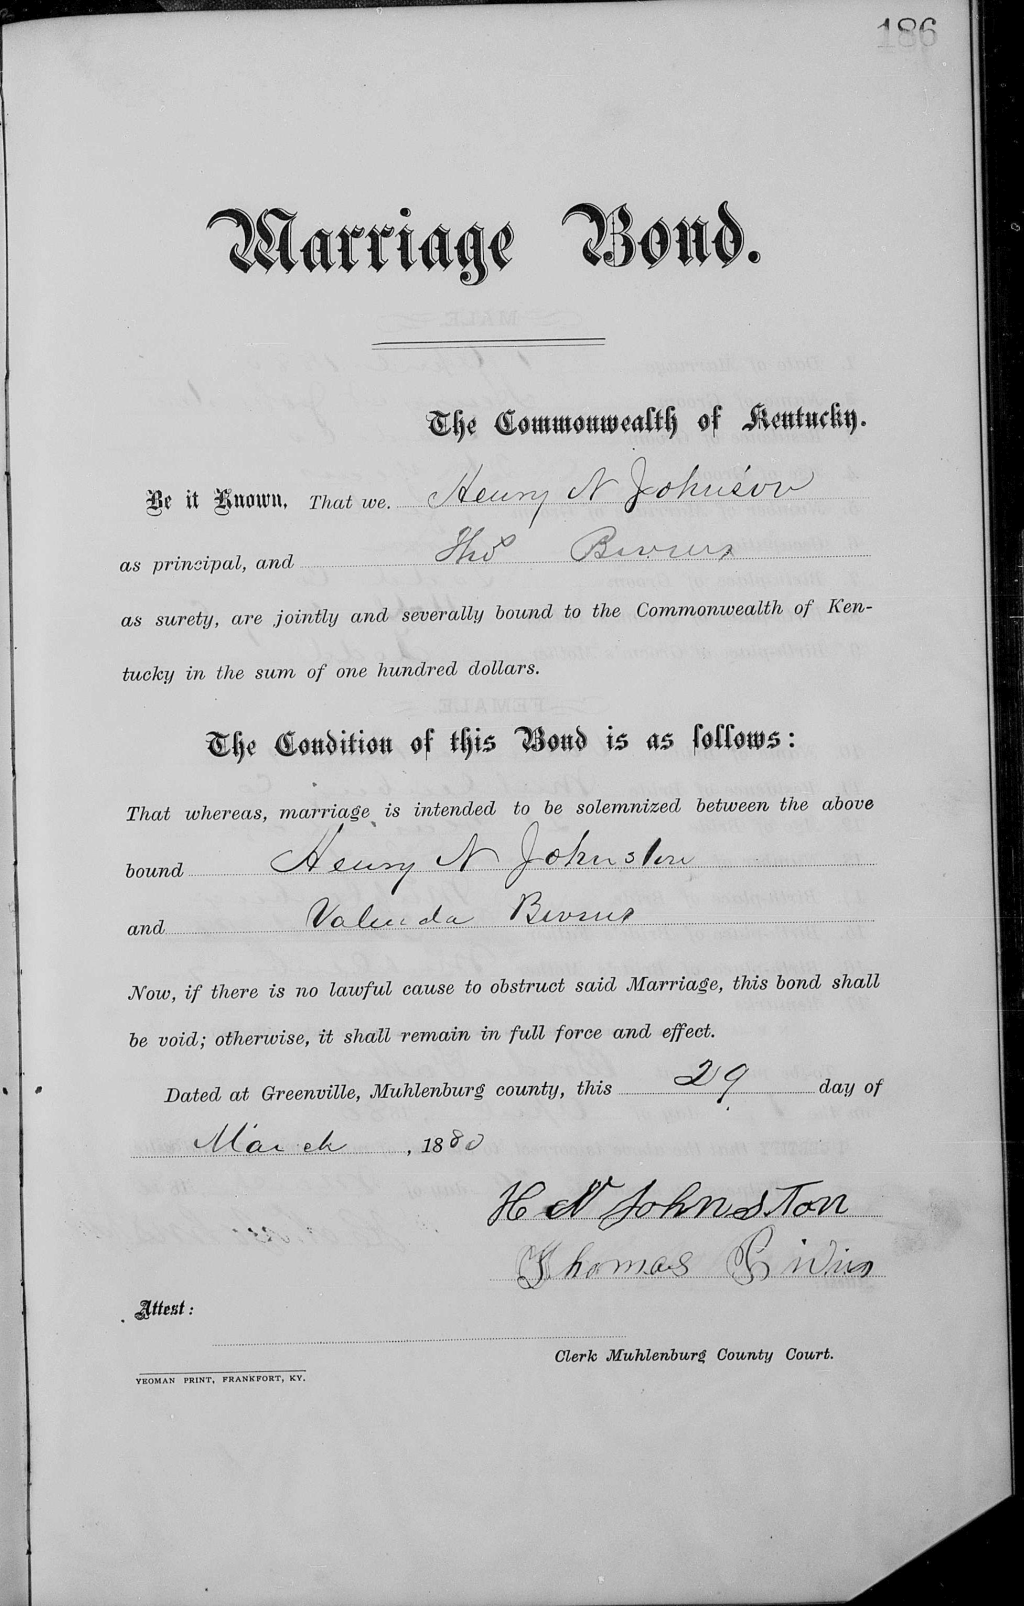 186
Marriage Bond.
The Commonwealth of Kentucky.
Be it Known, That we, Henry N Johnson
as principal, and Thos Bivins
as surety, are jointly and severally bound to the Commonwealth of Ken-
tucky in the sum of one hundred dollars.
The Condition of this Bond is as follows:
That whereas, marriage is intended to be solemnized between the above
bound Henry N Johnston
and Valenda Bivins
Now, if there is no lawful cause to obstruct said Marriage, this bond shall
be void; otherwise, it shall remain in full force and effect.
Dated at Greenville, Muhlenburg county, this 29 day of
March, 1880
H N Johnston
Thomas Bivins
Attest:
Clerk Muhlenburg County Court.
YEOMAN PRINT, FRANKFORT, KY.